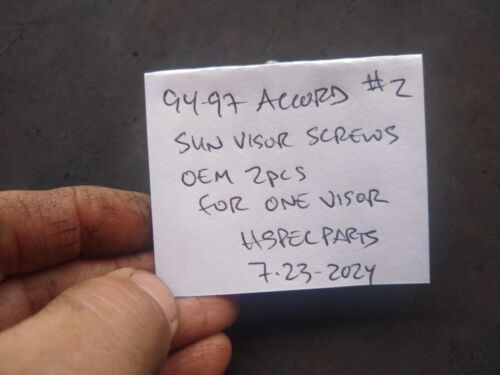 94-97 ACCORD #2
SUN VISOR SCREWS
OEM 2pcs
FOR ONE VISOR
HSPECPARTS
7-23-2024